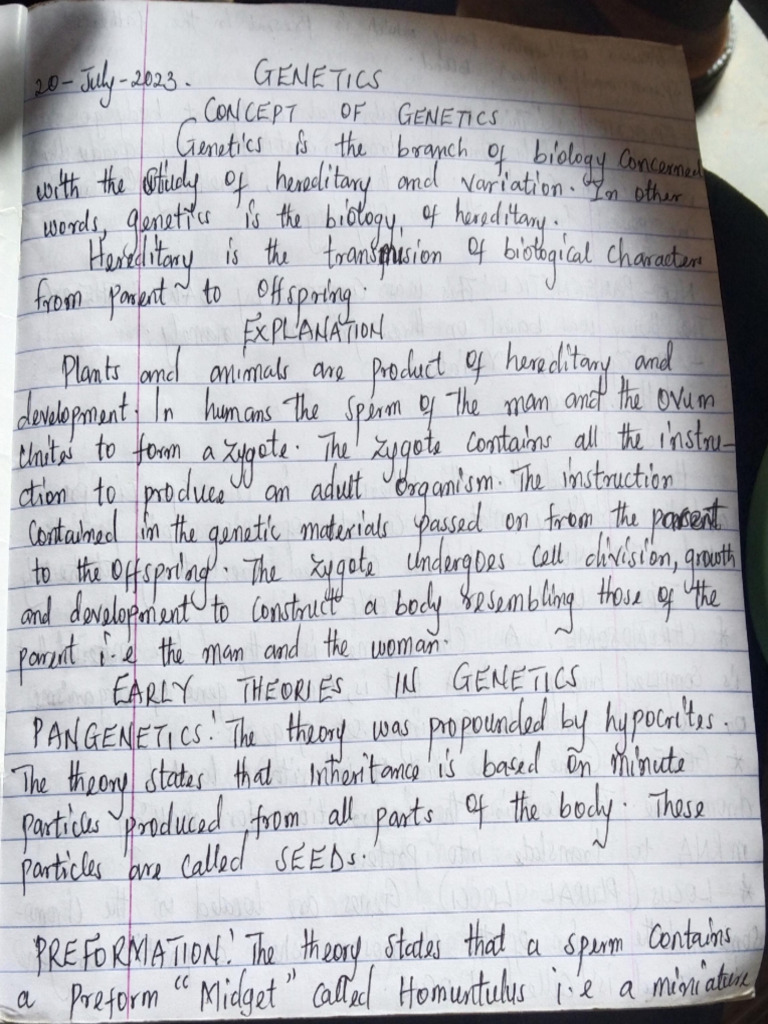 20-July-2023. GENETICS
CONCEPT OF GENETICS
Genetics is the branch of biology concerned
with the study of hereditary and variation. In other
words, genetics is the biology of hereditary.
Hereditary is the transmision of biological character
from parent to offspring.
EXPLANATION
Plants and animals are product of hereditary and
development. In humans the sperm of the man and the ovum
Unites to form a zygote. The zygote contains all the instru-
ction to produce an adult organism. The instruction
contained in the genetic materials passed on from the parent
to the offspring. The zygote undergoes cell division, growth
and development to construct a body resembling those of the
parent i.e the man and the woman.
EARLY THEORIES IN GENETICS
PANGENETICS: The theory was propounded by hypocrites.
The theory states that inheritance is based on minute
particles produced from all parts of the body. These
particles are called SEEDs.
PREFORMATION: The theory states that a sperm contains
a preform "Midget" called Homuntulus i.e a miniature